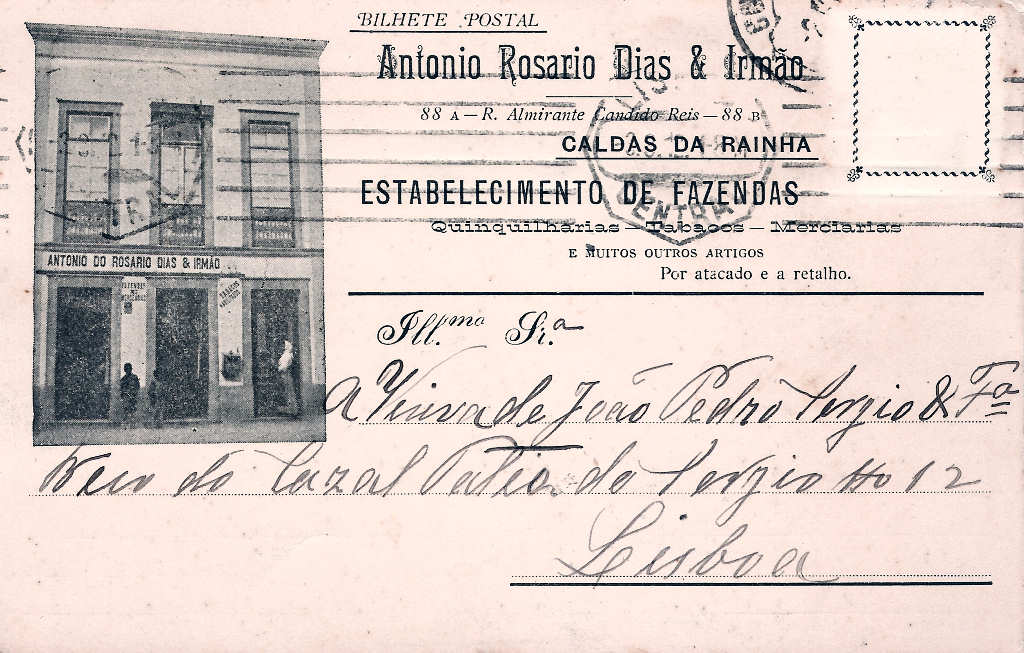 BILHETE POSTAL
Antonio Rosario Dias & Irmão
88 A — R. Almirante Candido Reis — 88 B
CALDAS DA RAINHA
ESTABELECIMENTO DE FAZENDAS
Quinquilharias — Tabacos — Merciarias
E MUITOS OUTROS ARTIGOS
Por atacado e a retalho.
ANTONIO DO ROSARIO DIAS & IRMÃO
Ill.mo Sr.a
A Viuva de João Pedro Sergio & Fa
do Cazal Pateo do Sergio No 12
Lisboa
LIS
CENTRAL